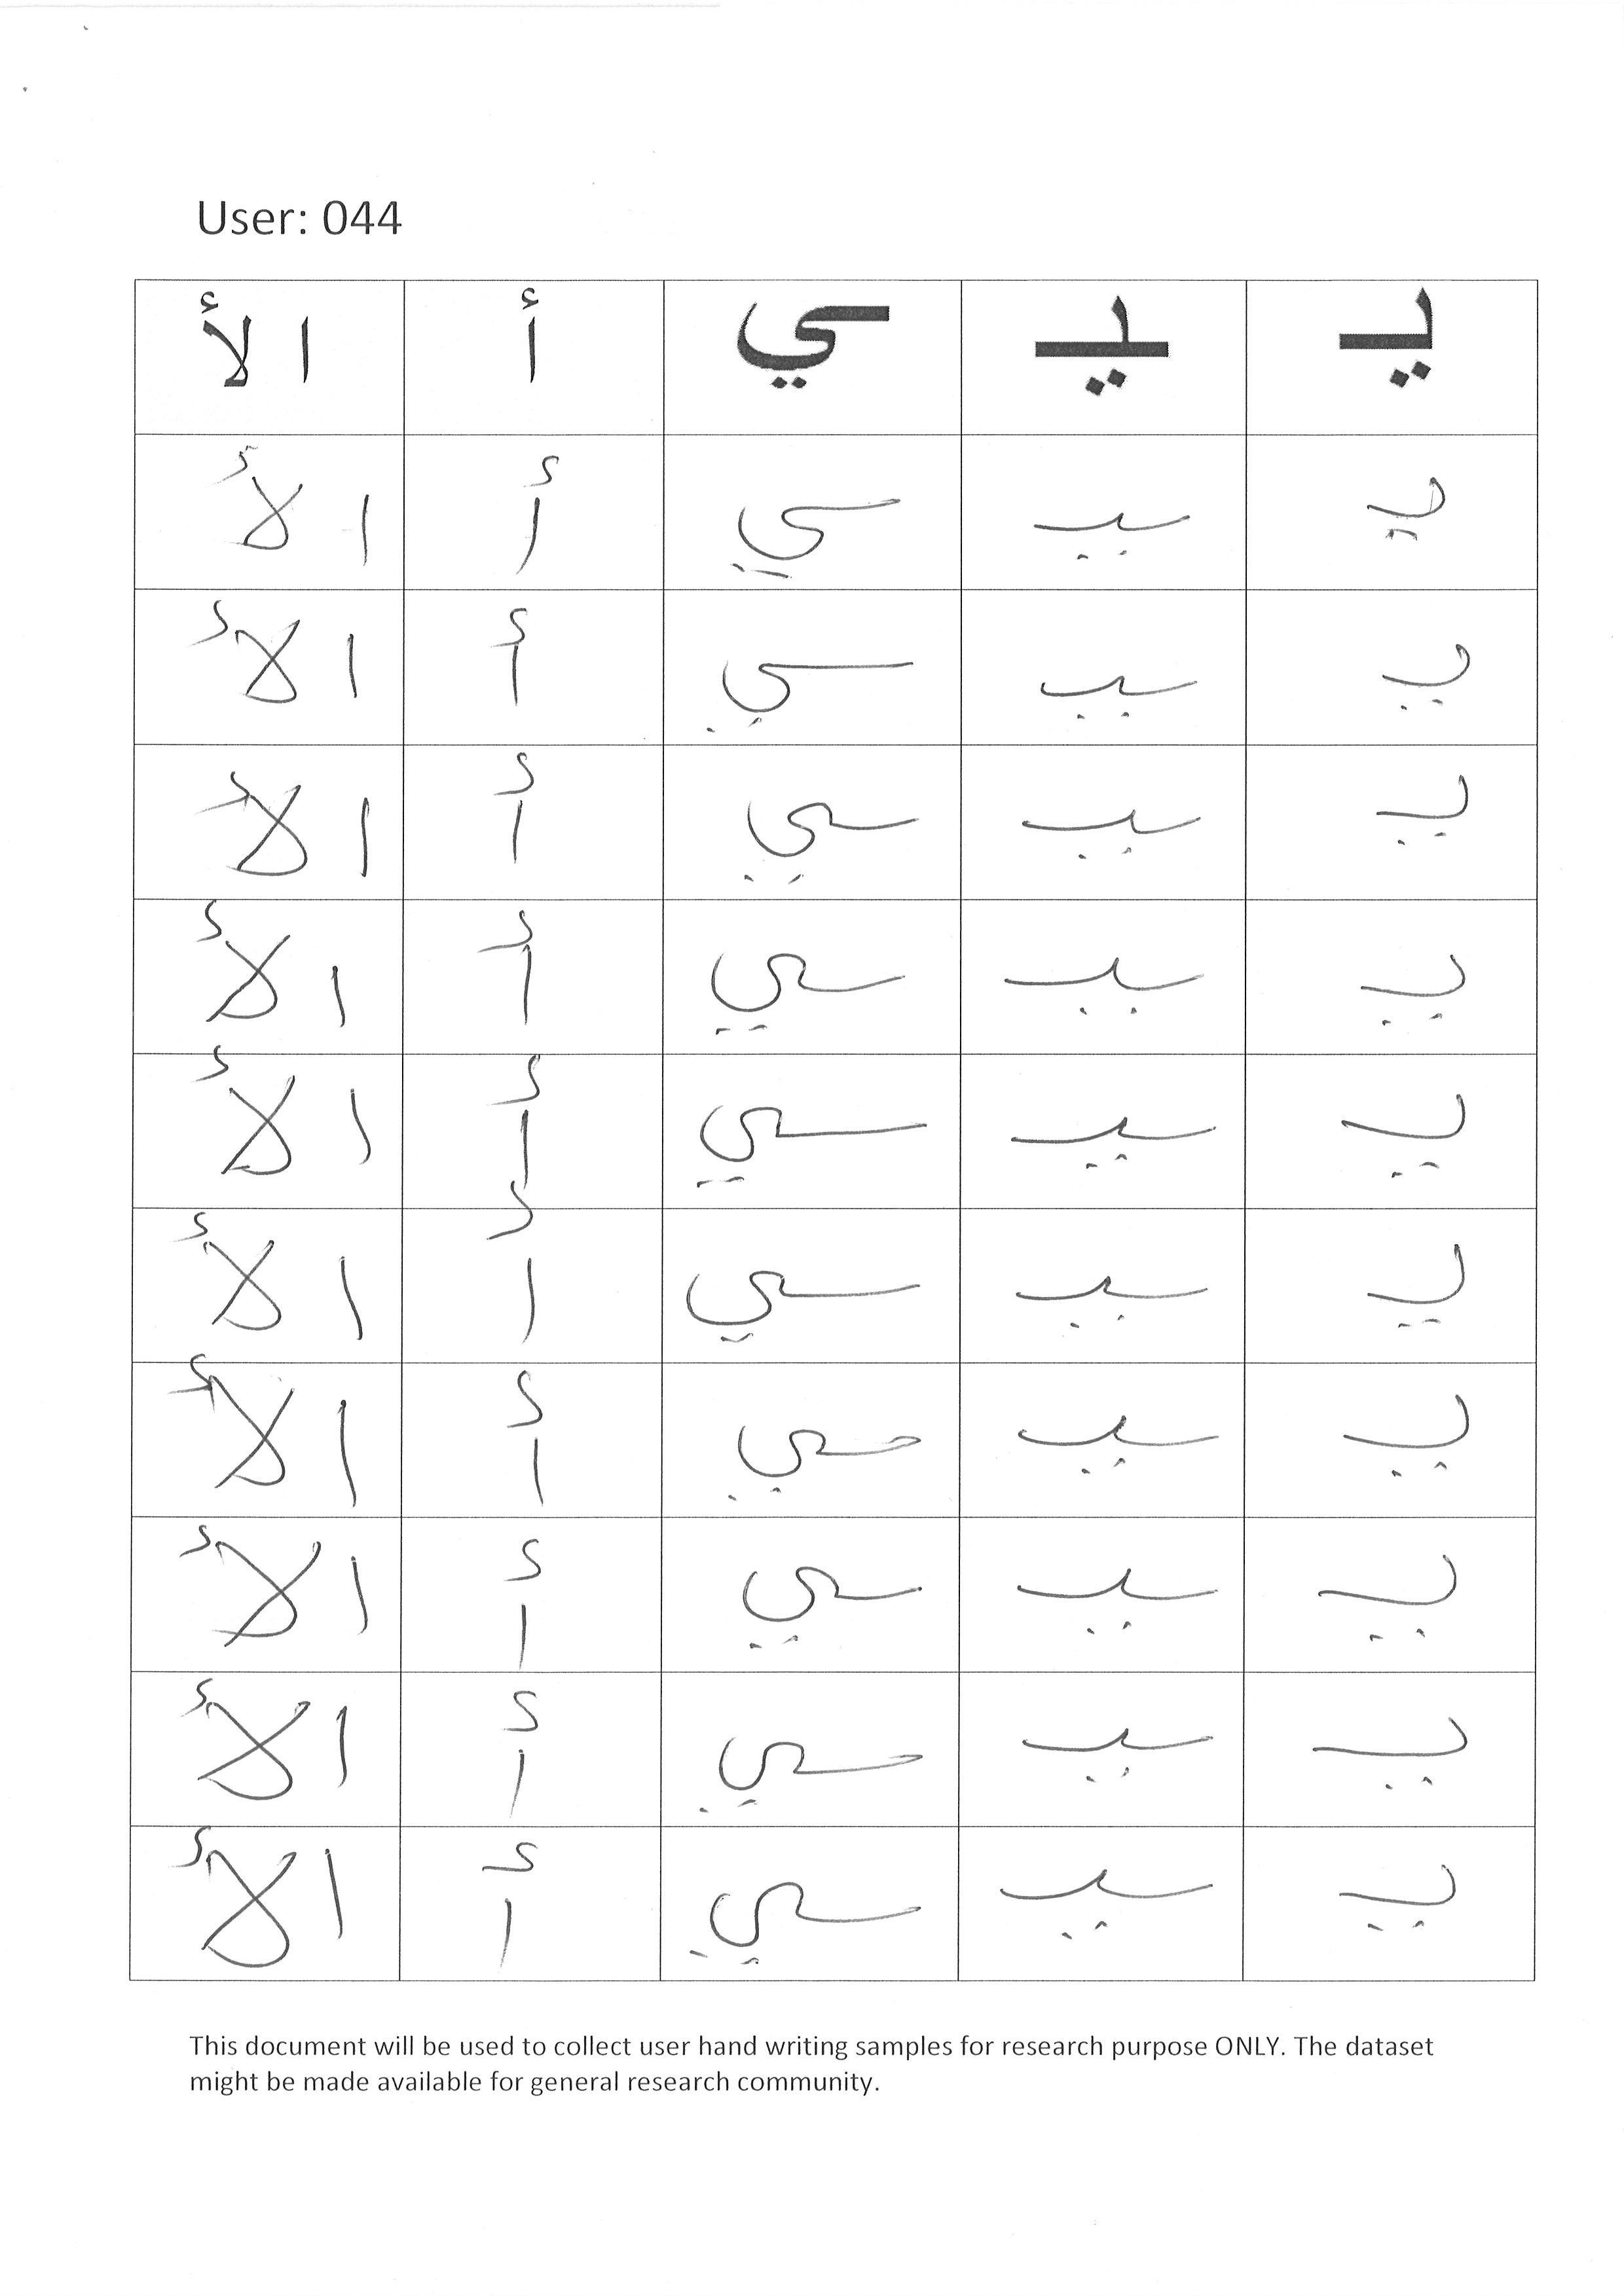 User: 044
يـ ـيـ ـي أ ا لأ
يـ ـيـ ـي أ ا لأ
يـ ـيـ ـي أ ا لأ
يـ ـيـ ـي أ ا لأ
يـ ـيـ ـي أ ا لأ
يـ ـيـ ـي أ ا لأ
يـ ـيـ ـي أ ا لأ
يـ ـيـ ـي أ ا لأ
يـ ـيـ ـي أ ا لأ
يـ ـيـ ـي أ ا لأ
يـ ـيـ ـي أ ا لأ
This document will be used to collect user hand writing samples for research purpose ONLY. The dataset
might be made available for general research community.